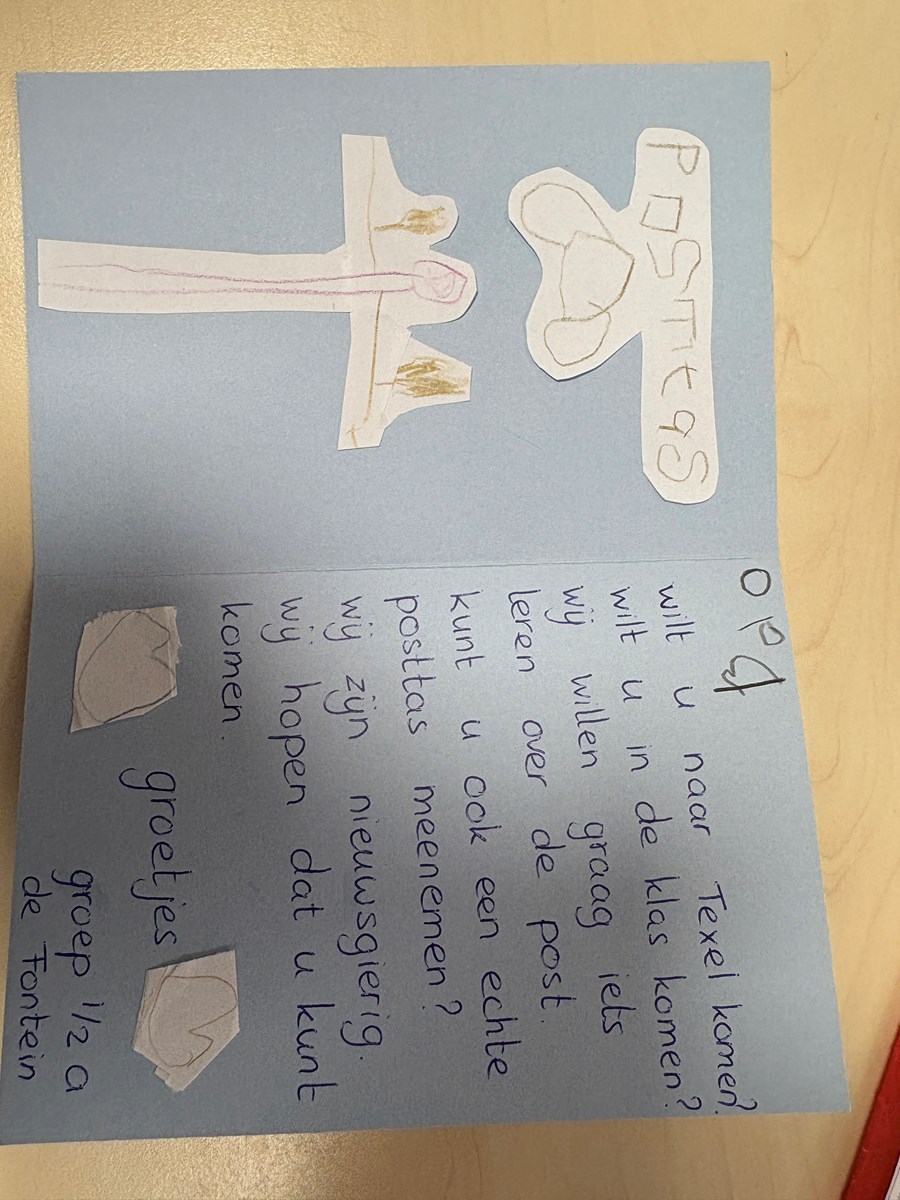 POSTtas
opa
wilt u naar Texel komen?
wilt u in de klas komen?
wij willen graag iets
leren over de post.
kunt u ook een echte
posttas meenemen?
wij zijn nieuwsgierig.
wij hopen dat u kunt
komen.
groetjes
groep 1/2 a
de Fontein